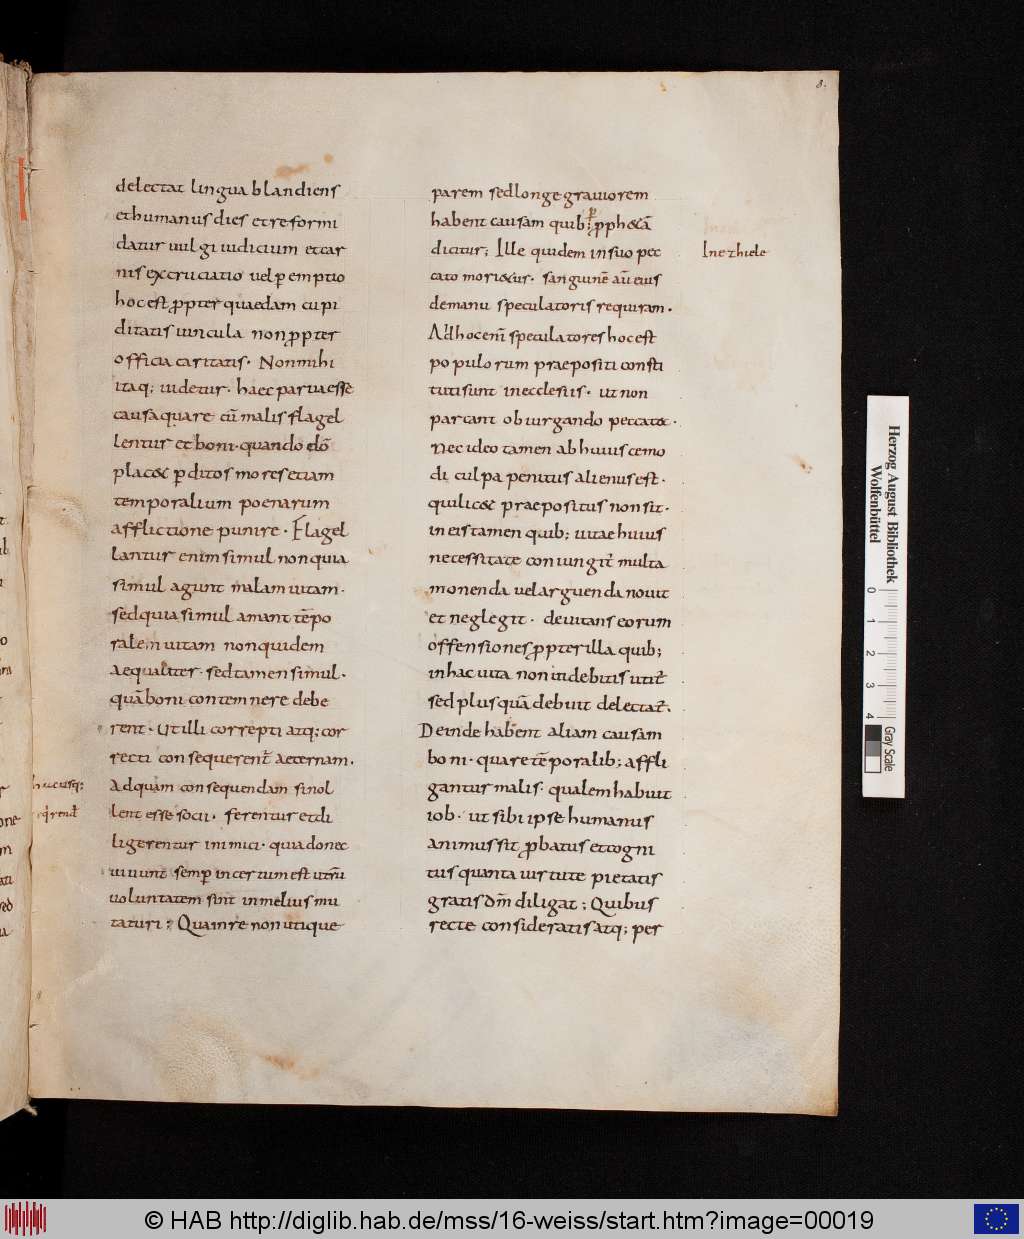 8.
delectat lingua blandiens
et humanus dies et reformi
datur uulgi iudicium et car
nis excruciatio uel peremptio
hoc est ꝓpter quaedam cupi
ditatis uincula non ꝓpter
officia caritatis. Non mihi
itaq; uidetur. haec parua esse
causa quare cū malis flagel
lentur et boni. quando dō
plac& perditos mores etiam
temporalium poenarum
afflictione punire. Flagel
lantur enim simul non quia
simul agunt malam uitam.
sed quia simul amant tēpo
ralem uitam non quidem
aequaliter. sed tamen simul.
quā boni contemnere debe
rent. Ut illi correpti atq; cor
recti consequerent̄ aeternam.
Ad quam consequendam si nol
lent esse socii. ferentur et di
ligerentur inimici. quia donec
uiuunt semp̱ incertum est utrū
uoluntatem sint in melius mu
taturi? Qua in re non utique
parem sed longe grauiorem
habent causam quib; ꝓ ꝑph&ā
dicitur; Ille quidem in suo pec
cato mori&ur. sanguinē aū eius
de manu speculatoris requiram.
Ad hoc eni̅ speculatores hoc est
populorum praepositi consti
tuti sunt in ecclesiis. ut non
parcant obiurgando peccata.
Nec ideo tamen ab huiuscemo
di culpa penitus alienus est.
qui lic& praepositus non sit.
in eis tamen quib; uitae huius
necessitate coniungit̄ multa
monenda uel arguenda nouit
et neglegit. deuitans eorum
offensiones ꝓpter illa quib;
in hac uita non indebitis utit̄
sed plus quā debuit delectat̄.
Deinde habent aliam causam
boni. quare tēporalib; affli
gantur malis. qualem habuit
iob. ut sibi ipse humanus
animus sit ꝓbatus et cogni
tus quanta uirtute pietatis
gratis dm̄ diligat; Quibus
recte consideratis atq; per
In ezhiele
Herzog August Bibliothek
Wolfenbüttel
0 1 2 3 4
Gray Scale
© HAB http://diglib.hab.de/mss/16-weiss/start.htm?image=00019